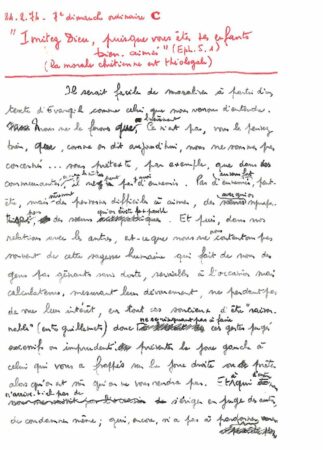 7e dimanche ordinaire C
"Imitez Dieu, puisque vous êtes ses enfants
bien-aimés" (Eph. 5.1)
(la morale chrétienne est théologale)
Il serait facile de moraliser à partir d'un
texte d'Evangile comme celui que nous venons d'entendre.
nous ne le ferons que Ce n'est pas, vous le pensez
bien, que, comme on dit aujourd'hui, nous ne sommes pas
concernés ... sous prétexte, par exemple, que dans
communautés, il n'y a pas d'ennemis. Pas d'ennemis, peut-
être, mais des personnes difficiles à aimer,
Et puis, dans nos
relations avec les autres, est-ce que nous ne nous contentons pas
souvent de cette sagesse humaine qui fait de nous des
gens pas gênants sans doute, serviables à l'occasion mais
calculateurs, mesurant leur dévouement, ne perdant pas
de vue leur intérêt, en tout cas soucieux d'être "raison-
nables" (entre guillemets) donc ces gestes jugés
excessifs ou imprudents : présenter la joue gauche à
celui qui vous a frappés sur la joue droite ou prêter
alors qu'on est sûr qu'on ne vous rendra pas. Et à qui
n'arrive-t-il pas de s'ériger en juge des autres,
de condamner même ; qui, encore, n'a pas à pardonner